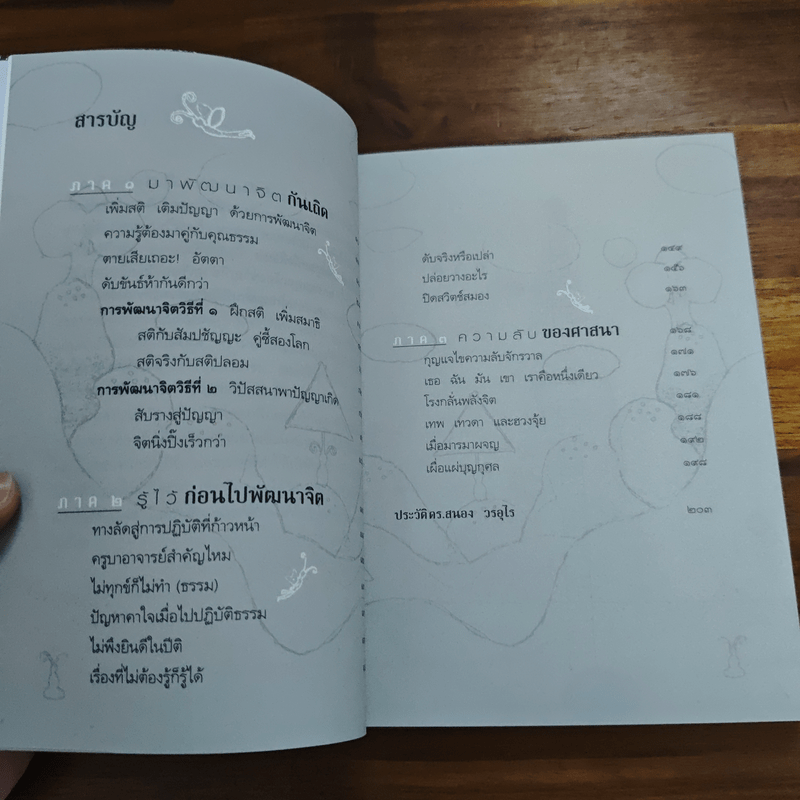 สารบัญ
ภาค ๑ มาพัฒนาจิตกันเถิด
เพิ่มสติ เติมปัญญา ด้วยการพัฒนาจิต
ความรู้ต้องมาคู่กับคุณธรรม
ตายเสียเถอะ! อัตตา
ดับขันธ์ห้ากันดีกว่า
การพัฒนาจิตวิธีที่ ๑ ฝึกสติ เพิ่มสมาธิ
สติกับสัมปชัญญะ คู่ซี้สองโลก
สติจริงกับสติปลอม
การพัฒนาจิตวิธีที่ ๒ วิปัสสนาพาปัญญาเกิด
สับรางสู่ปัญญา
จิตนิ่งปิ๊งเร็วกว่า
ภาค ๒ รู้ไว้ก่อนไปพัฒนาจิต
ทางลัดสู่การปฏิบัติที่ก้าวหน้า
ครูบาอาจารย์สำคัญไหม
ไม่ทุกข์ก็ไม่ทำ (ธรรม)
ปัญหาคาใจเมื่อไปปฏิบัติธรรม
ไม่พึงยินดีในปีติ
เรื่องที่ไม่ต้องรู้ก็รู้ได้
ดับจริงหรือเปล่า ๑๔๙
ปล่อยวางอะไร ๑๕๖
ปิดสวิตช์สมอง ๑๖๓
ภาค ๓ ความลับของศาสนา ๑๖๘
กุญแจไขความลับจักรวาล ๑๗๑
เธอ ฉัน มัน เขา เราคือหนึ่งเดียว ๑๗๖
โรงกลั่นพลังจิต ๑๘๑
เทพ เทวดา และฮวงจุ้ย ๑๘๘
เมื่อมารมาผจญ ๑๙๒
เผื่อแผ่บุญกุศล ๑๙๘
ประวัติดร.สนอง วรอุไร ๒๐๓